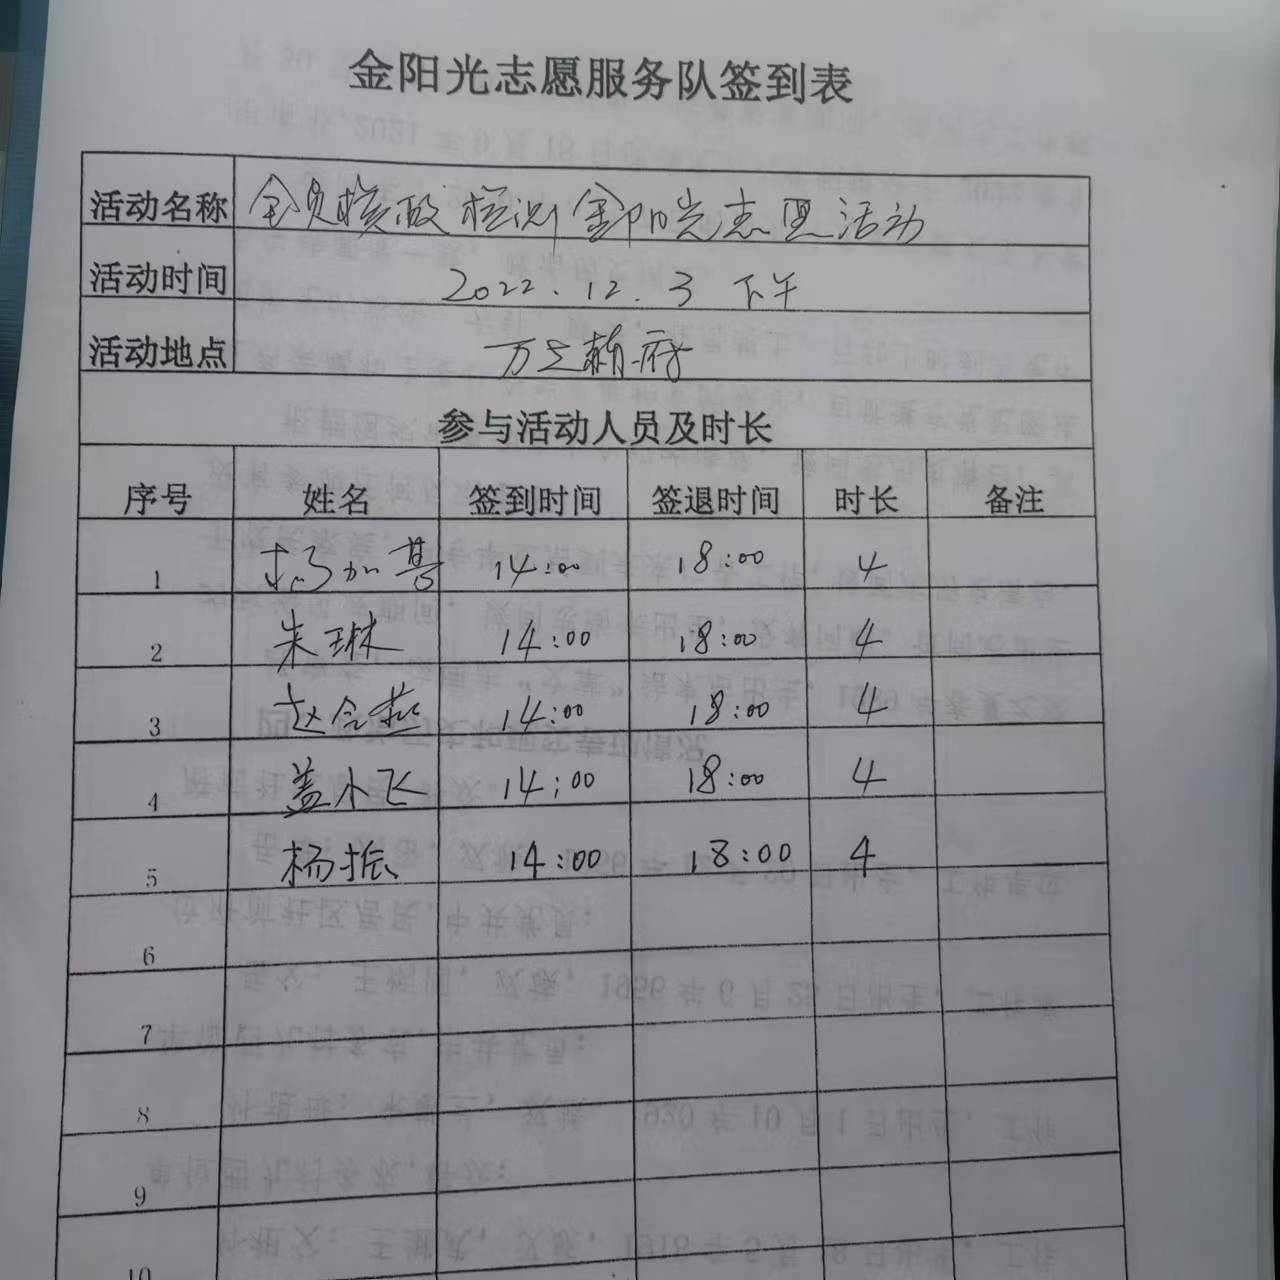 金阳光志愿服务队签到表
活动名称 全员核酸检测金阳光志愿活动
活动时间 2022.12.3 下午
活动地点 万之赖府
参与活动人员及时长
序号 姓名 签到时间 签退时间 时长 备注
1 14:00 18:00 4
2 朱琳 14:00 18:00 4
3 赵会燕 14:00 18:00 4
4 盖小飞 14:00 18:00 4
5 杨振 14:00 18:00 4
6
7
8
9
10